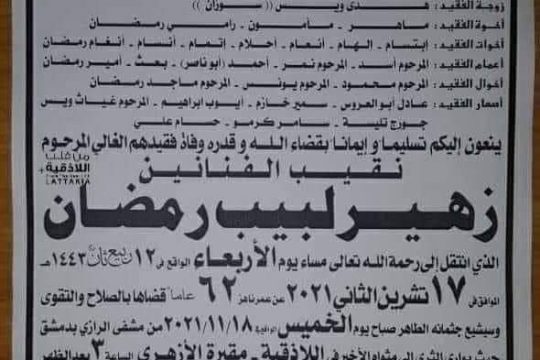 زوجة الفقيد: هدى ويس (( سوزان ))
أخوة الفقيد: ماهر - مأمون - رامي رمضان
أخوات الفقيد: إبتسام - الهام - أنعام - أحلام - إتمام - أنسام - أنغام رمضان
أعمام الفقيد: المرحوم أسد - المرحوم نمر - أحمد (أبو ناصر) - بعث - أمير رمضان
أخوال الفقيد: المرحوم محمود - المرحوم يونس - المرحوم ماجد رمضان
أصهار الفقيد: عادل أبو العروس - سمير خازم - أيوب ابراهيم - المرحوم غياث ويس
جورج تلية - سامر كرمو - حسام علي
ينعون إليكم تسليما و إيمانا بقضاء الله و قدره وفاة فقيدهم الغالي المرحوم
نقيب الفنانين
من قلب
اللاذقية
LATTAKIA
زهير لبيب رمضان
الذي انتقل إلى رحمة الله تعالى مساء يوم الأربعاء الواقع في ١٢ ربيع ثان ١٤٤٣هـ
الموافق في ١٧ تشرين الثاني ٢٠٢١ عن عمر ناهز ٦٢ عاما قضاها بالصلاح والتقوى
وسيشيع جثمانه الطاهر صباح يوم الخميس الموافق ٢٠٢١/١١/١٨ من مشفى الرازي بدمشق
حيث يوارى الثرى إلى مثواه الأخير في اللاذقية - مقبرة الأزهري الساعة ٣ بعد الظهر